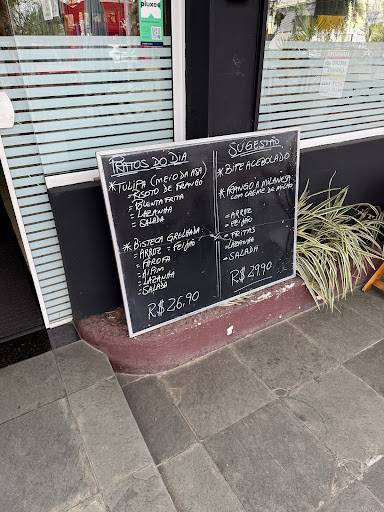 pluxee
PRATOS DO DIA
* TULIPA (MEIO DA ASA)
= RISOTO DE FRANGO
= POLENTA FRITA
= LAZANHA
= SALADA
* BISTECA GRELHADA
= ARROZ = FEIJÃO
= FAROFA
= AIPIM
= LAZANHA
= SALADA
R$ 26,90
SUGESTÃO
* BIFE ACEBOLADO
* FRANGO A MILANESA
COM CREME DE MILHO
- ARROZ
- FEIJÃO
- FRITAS
- LAZANHA
- SALADA
R$ 29,90